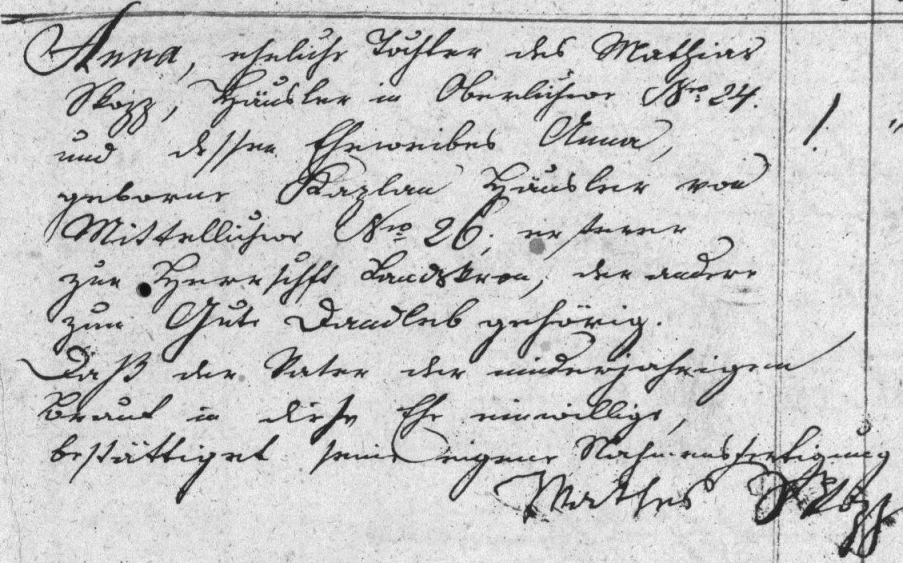 Anna, eheliche Tochter des Mathias
Skopp, Häusler in Oberlichwe Nro. 24. 1.
und dessen Eheweibes Anna,
geborne Kaplan Häusler von
Mittellichwe Nro 26, ersterer
zur Herrschft Landskron, der andere
zum Gute gehörig.
Daß der Vater der minderjährigen
Braut in diese Ehe einwillige,
bestättiget seine eigene Nahmensfertigung
Mathes Skopp